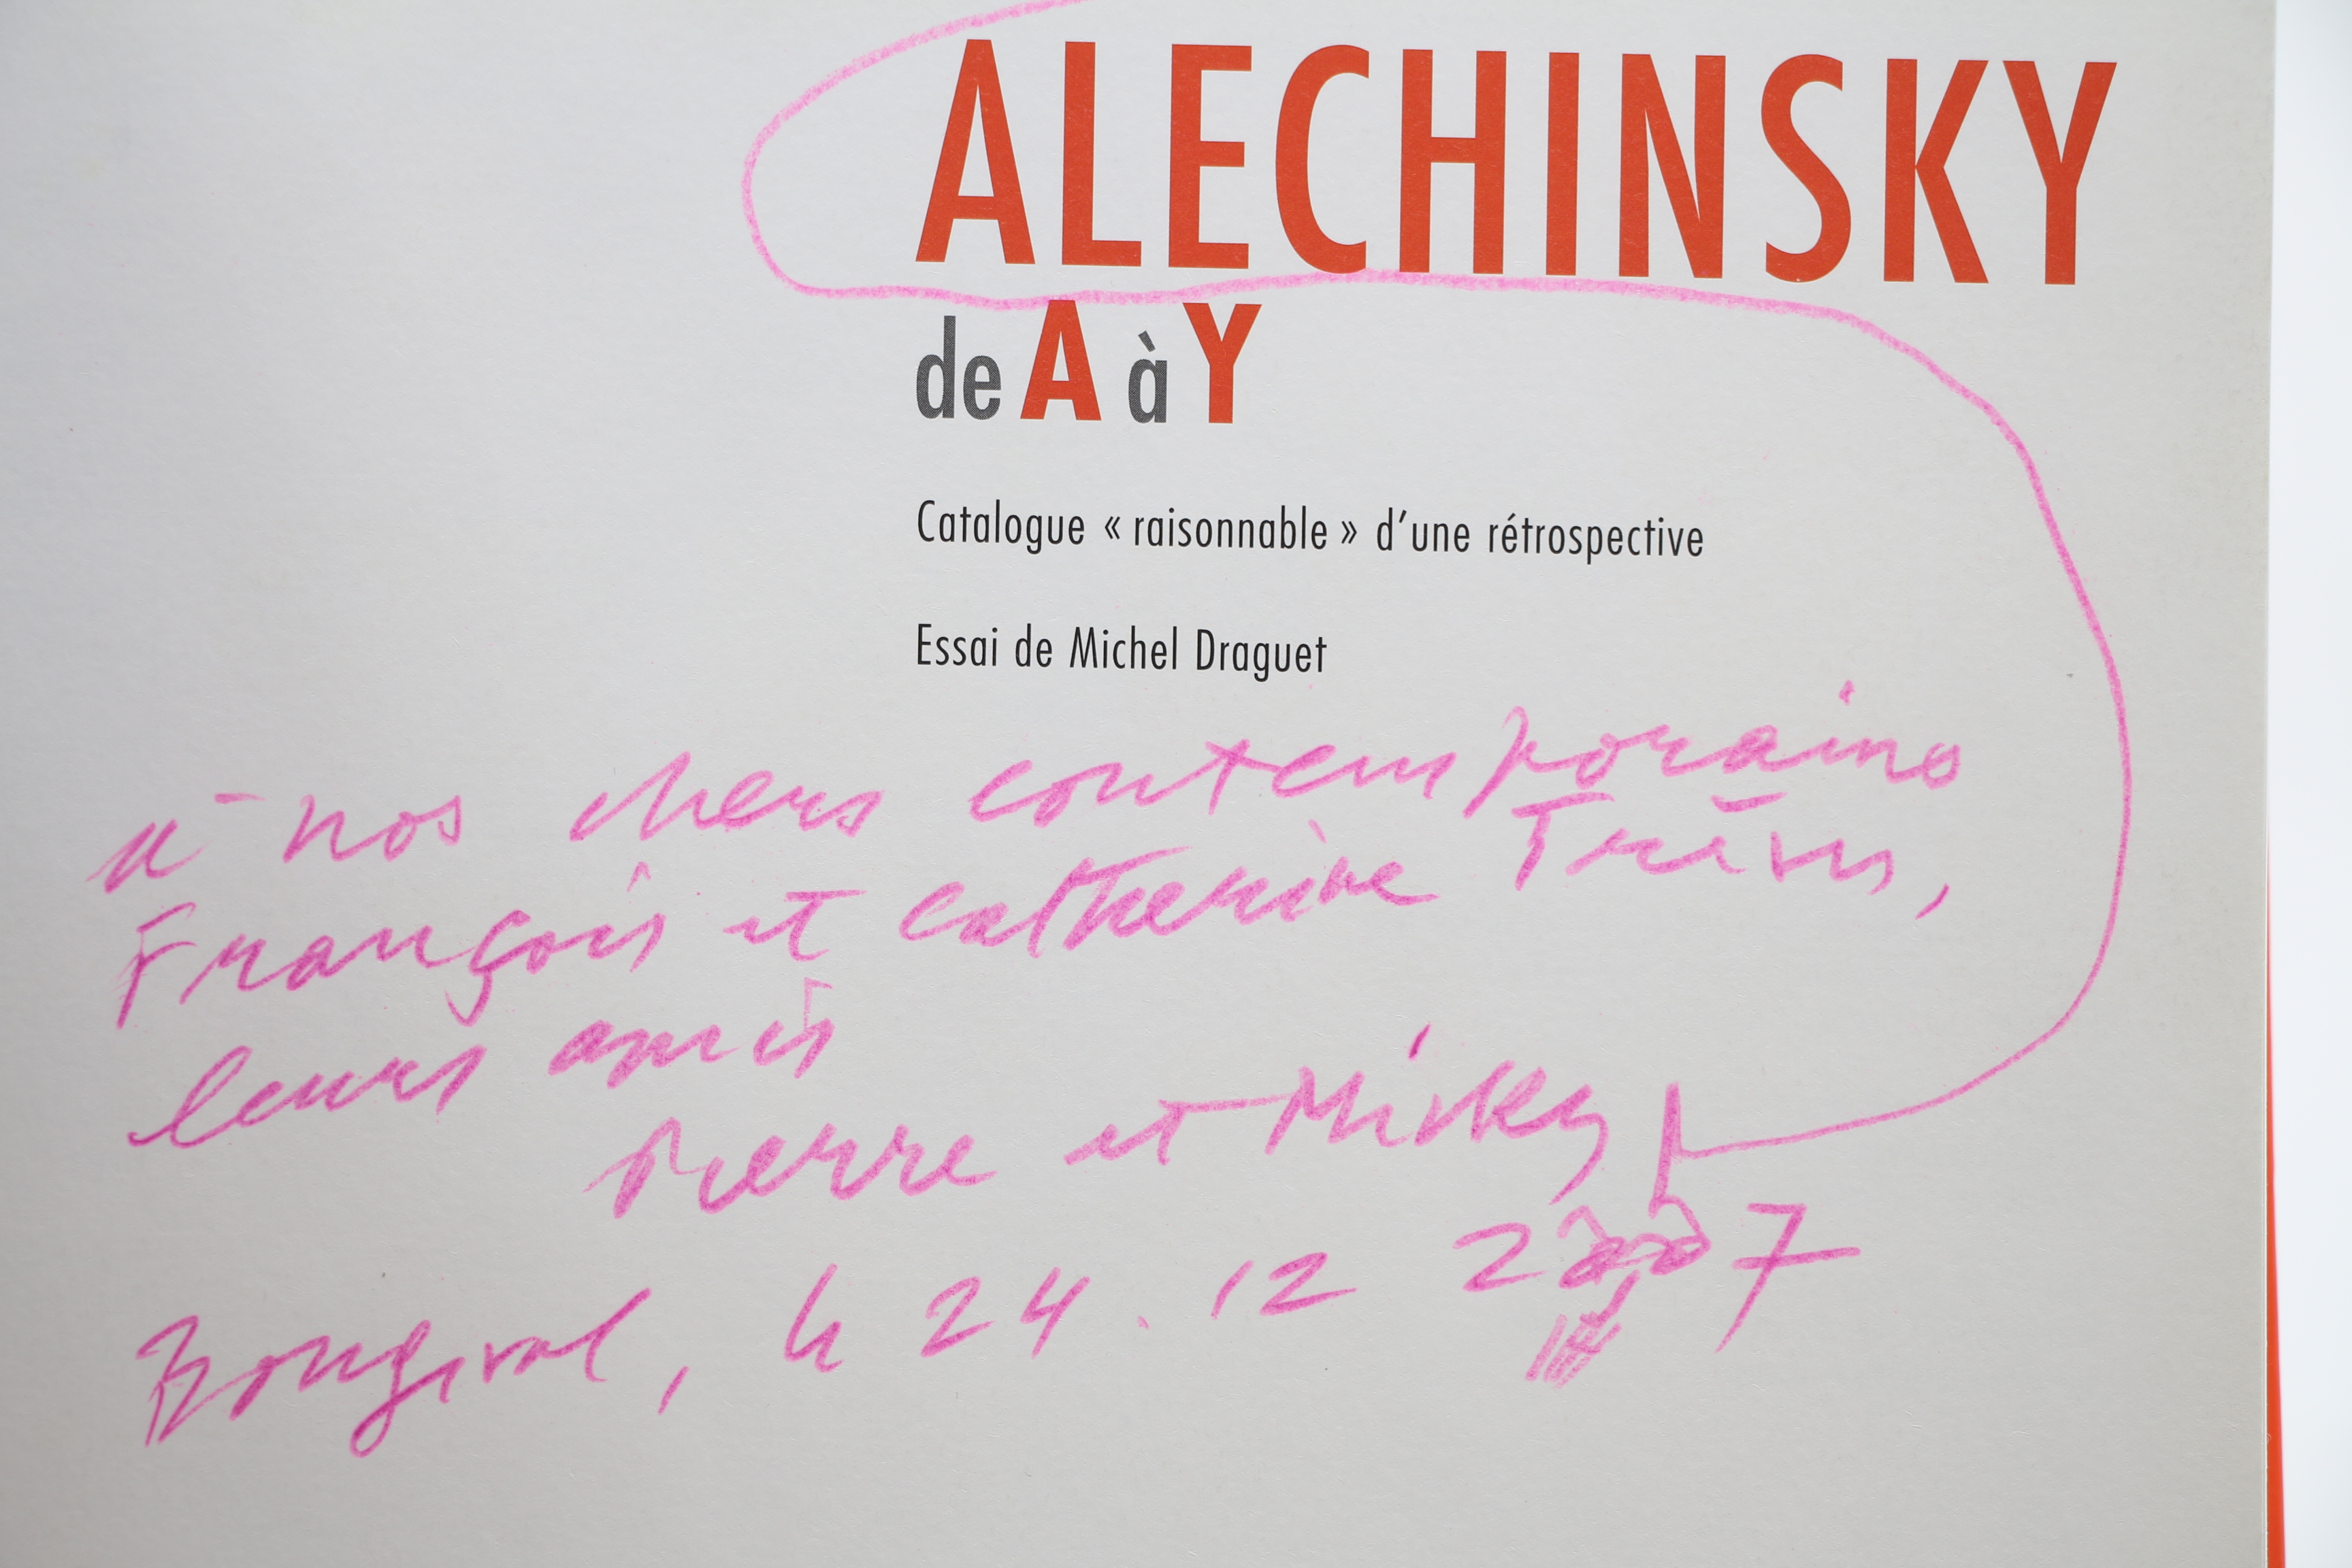 ALECHINSKY
de A à Y
Catalogue « raisonnable » d'une rétrospective
Essai de Michel Draguet
à nos chers contemporains
François et Catherine Trèves,
leurs amis
Pierre et Micky
Bougival, le 24.12 2007